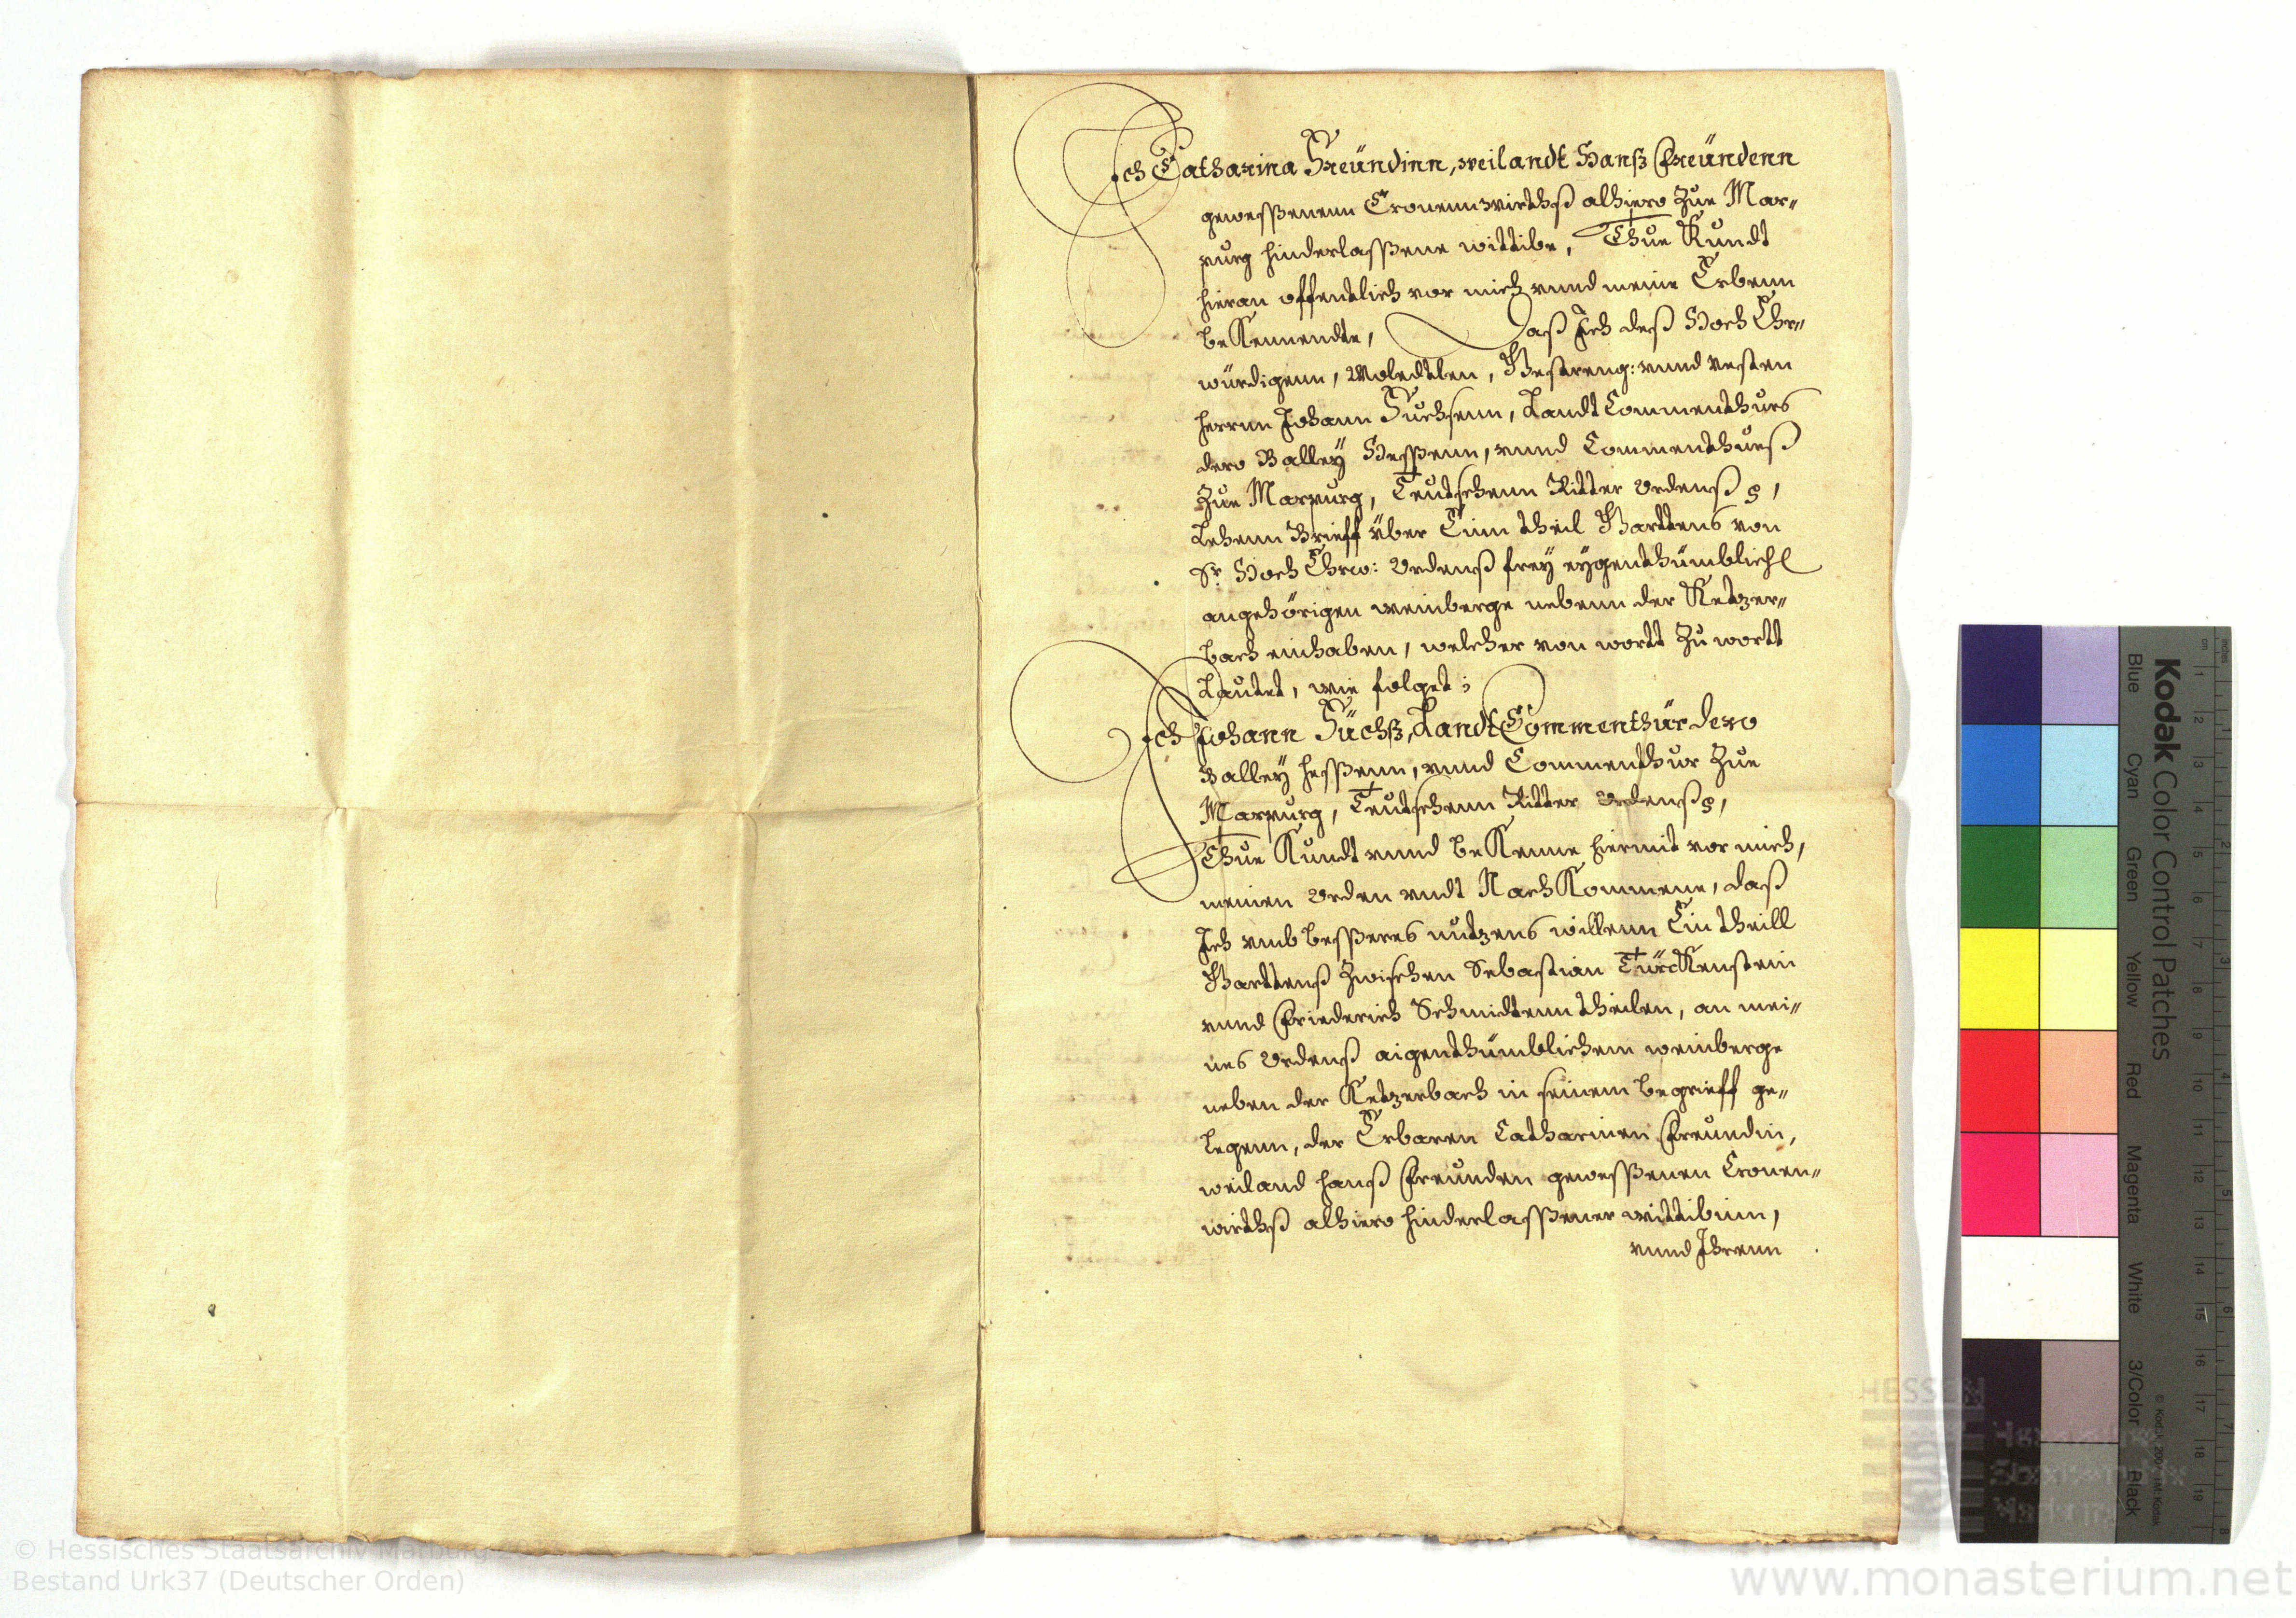 Ich Catharina Freündinn, weilandt Hanß Freündenn
geweßenenn Cronennwirthß alhiero Zue Mar„
purg hinderlaßene wittibe, Thue Kundt
hieran offendtlich vor mich unnd meine Erbenn
beKennendte, Daß Ich deß Hoch Ehr„
würdigenn, Woledtlen, Gestreng: unnd vesten
Herrnn Johann Fuchsenn, Landt Commenthurs
dero Balley Heßenn, unnd Commenthurß
Zue Marpurg, Teutschenn Ritter Ordenß
Lehenn Brieff über Einn theil Garttens von
Sr. Hoch Ehrw: Ordenß frey eygenthümblich
angehörigen weinberge nebenn der Ketzer„
bach einhaben, welcher von wortt Zu wortt
Lautet, wie folget;
Ich Johann Füchß, Landt Commenthür dero
Balley Heßenn, unnd Commenthur Zue
Marpurg, Teutschenn Ritter Ordenß,
Thue Kundt unnd beKenne hiermit vor mich,
meinen Orden undt NachKommenn, daß
Ich umb beßeres nutzens willenn Ein theill
Garttenß Zwischen Sebastian TürcKenstein
unnd Friederich Schmidtenn theilen, an mei„
nes Ordenß aigenthümblichem weinberge
neben der Ketzerbach in seinem begrieff ge„
legenn, der Erbaren Catharinen Freundin,
weiland Hanß Freunden geweßenen Cronen„
wirthß alhiero hinderlaßener wittibinn,
unnd Ihrenn
Kodak Color Control Patches
Blue Cyan Green Yellow Red Magenta White 3/Color Black
© Hessisches Staatsarchiv Marburg
Bestand Urk37 (Deutscher Orden)
www.monasterium.net